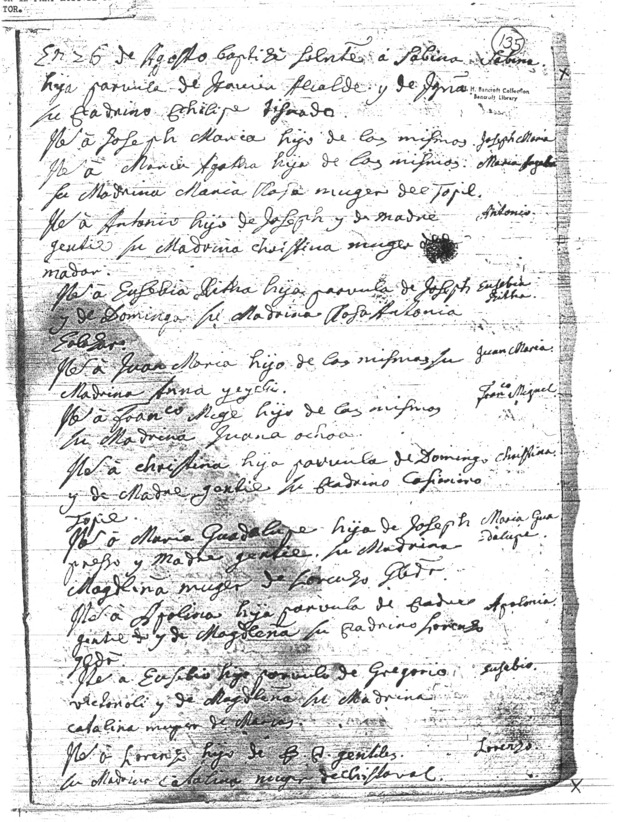 TOR.
135
En 26 de Agosto baptizè solemnte à Sabina Sabina.
hija parvula de Alcalde y de Ignã
H. Bancroft Collection
Bancroft Library
su Padrino Phelipe
Ytẽ à Joseph Maria hijo de los mismos. Joseph Maria
Ytẽ à Maria Agatha hija de los mismos.
su Madrina Maria Rosa muger del Topil.
Ytẽ à Antonio hijo de Joseph y de madre Antonio.
gentil su Madrina Christina muger
mador.
Ytẽ à Eusebia Ritha hija parvula de Joseph Eusebia
y de Dominga su Madrina Rosa Antonia Ritha.
Ytẽ à Juan Maria hijo de los mismos su Juan Maria.
Madrina Anna
Ytẽ à Franco Migl hijo de los mismos Franco Miguel
su Madrina Juana ochoa.
Ytẽ à Christina hija parvula de Domingo Christina.
y de Madre gentil su Padrino Casimiro
Topil.
Ytẽ à Maria Guadalupe hija de Joseph Maria Gua
y Madre gentil. su Madrina dalupe.
Magdlẽna muger de Lorenzo
Ytẽ à Apolina hija parvula de Padre Apolonia.
gentil y de Magdlẽna su Padrino Lorenzo
Ytẽ a Eusebio hijo parvulo de Gregorio Eusebio.
y de Magdlẽna su Madrina
Catalina muger de Marcos.
Ytẽ à Lorenzo hijo de P. P. gentiles. Lorenzo.
su Madrina Catalina muger de Christoval.
X